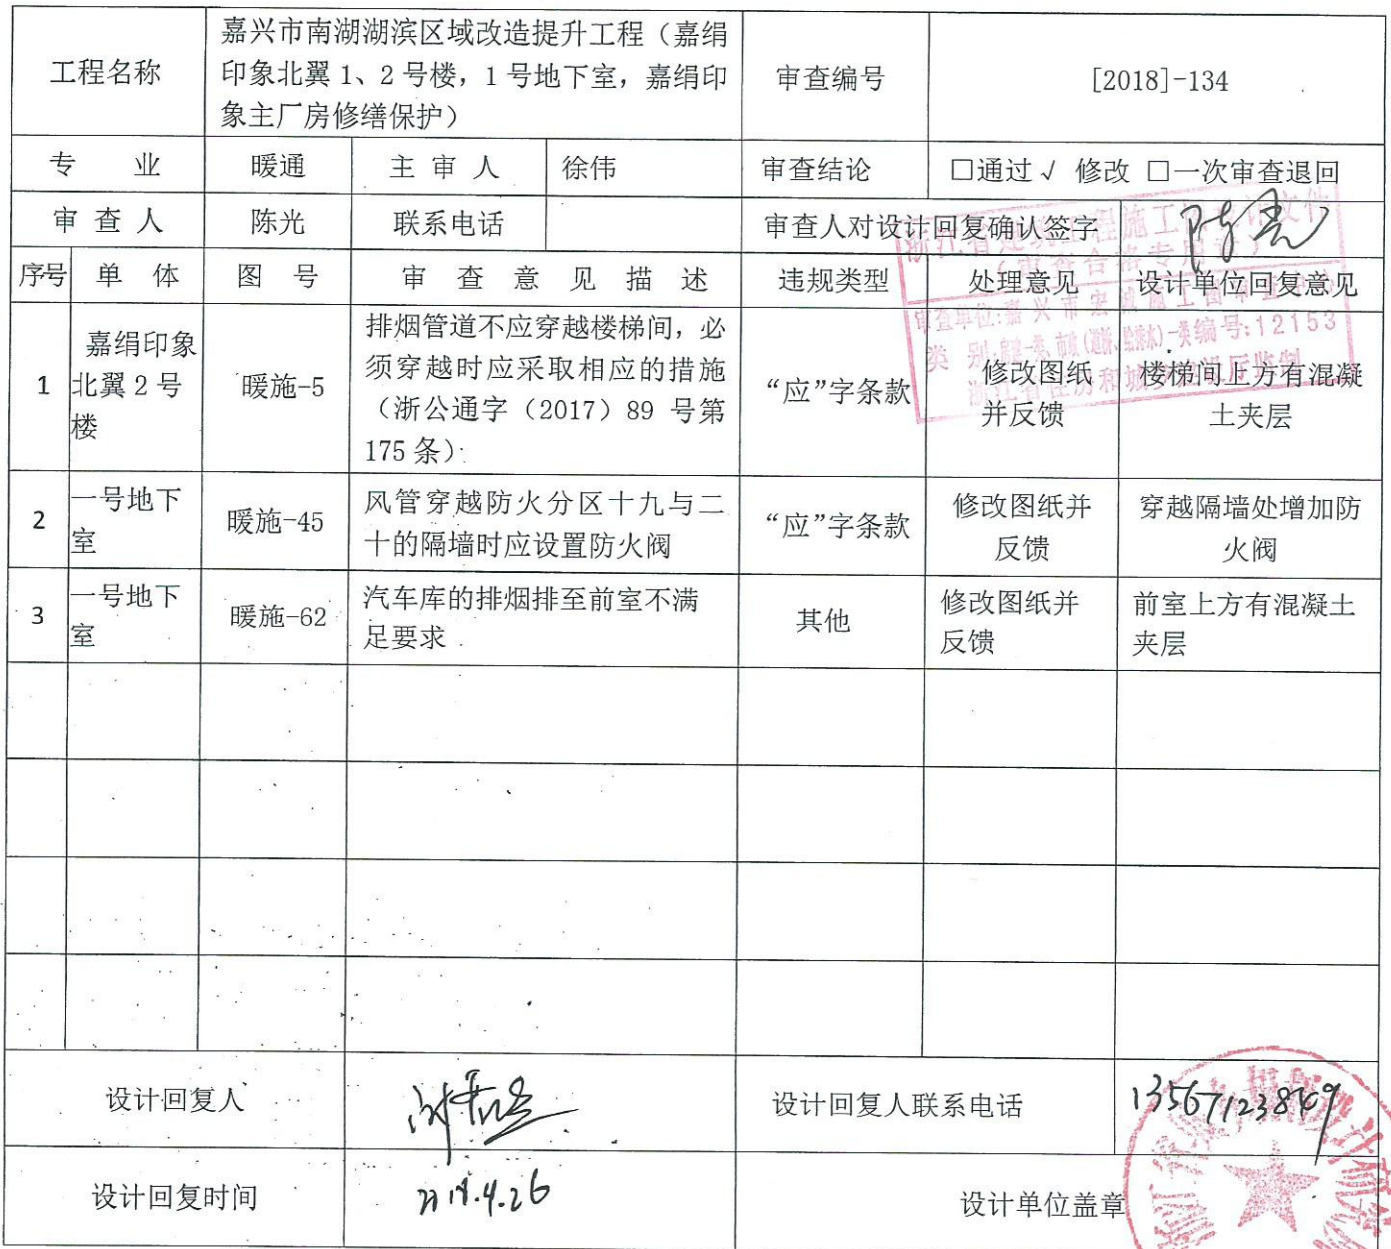 工程名称
嘉兴市南湖湖滨区域改造提升工程（嘉绢
印象北翼 1、2 号楼，1 号地下室，嘉绢印
象主厂房修缮保护）
审查编号
[2018]-134
专 业
暖通
主 审 人
徐伟
审查结论
□通过√ 修改 □一次审查退回
审 查 人
陈光
联系电话
审查人对设计回复确认签字
陈光
序号
单 体
图 号
审 查 意 见 描 述
违规类型
处理意见
设计单位回复意见
1
嘉绢印象
北翼 2 号
楼
暖施-5
排烟管道不应穿越楼梯间，必
须穿越时应采取相应的措施
（浙公通字（2017）89 号第
175 条）
“应”字条款
修改图纸
并反馈
楼梯间上方有混凝
土夹层
2
一号地下
室
暖施-45
风管穿越防火分区十九与二
十的隔墙时应设置防火阀
“应”字条款
修改图纸并
反馈
穿越隔墙处增加防
火阀
3
一号地下
室
暖施-62
汽车库的排烟排至前室不满
足要求
其他
修改图纸并
反馈
前室上方有混凝土
夹层
编号:12153
设计回复人
设计回复人联系电话
设计回复时间
2018.4.26
设计单位盖章